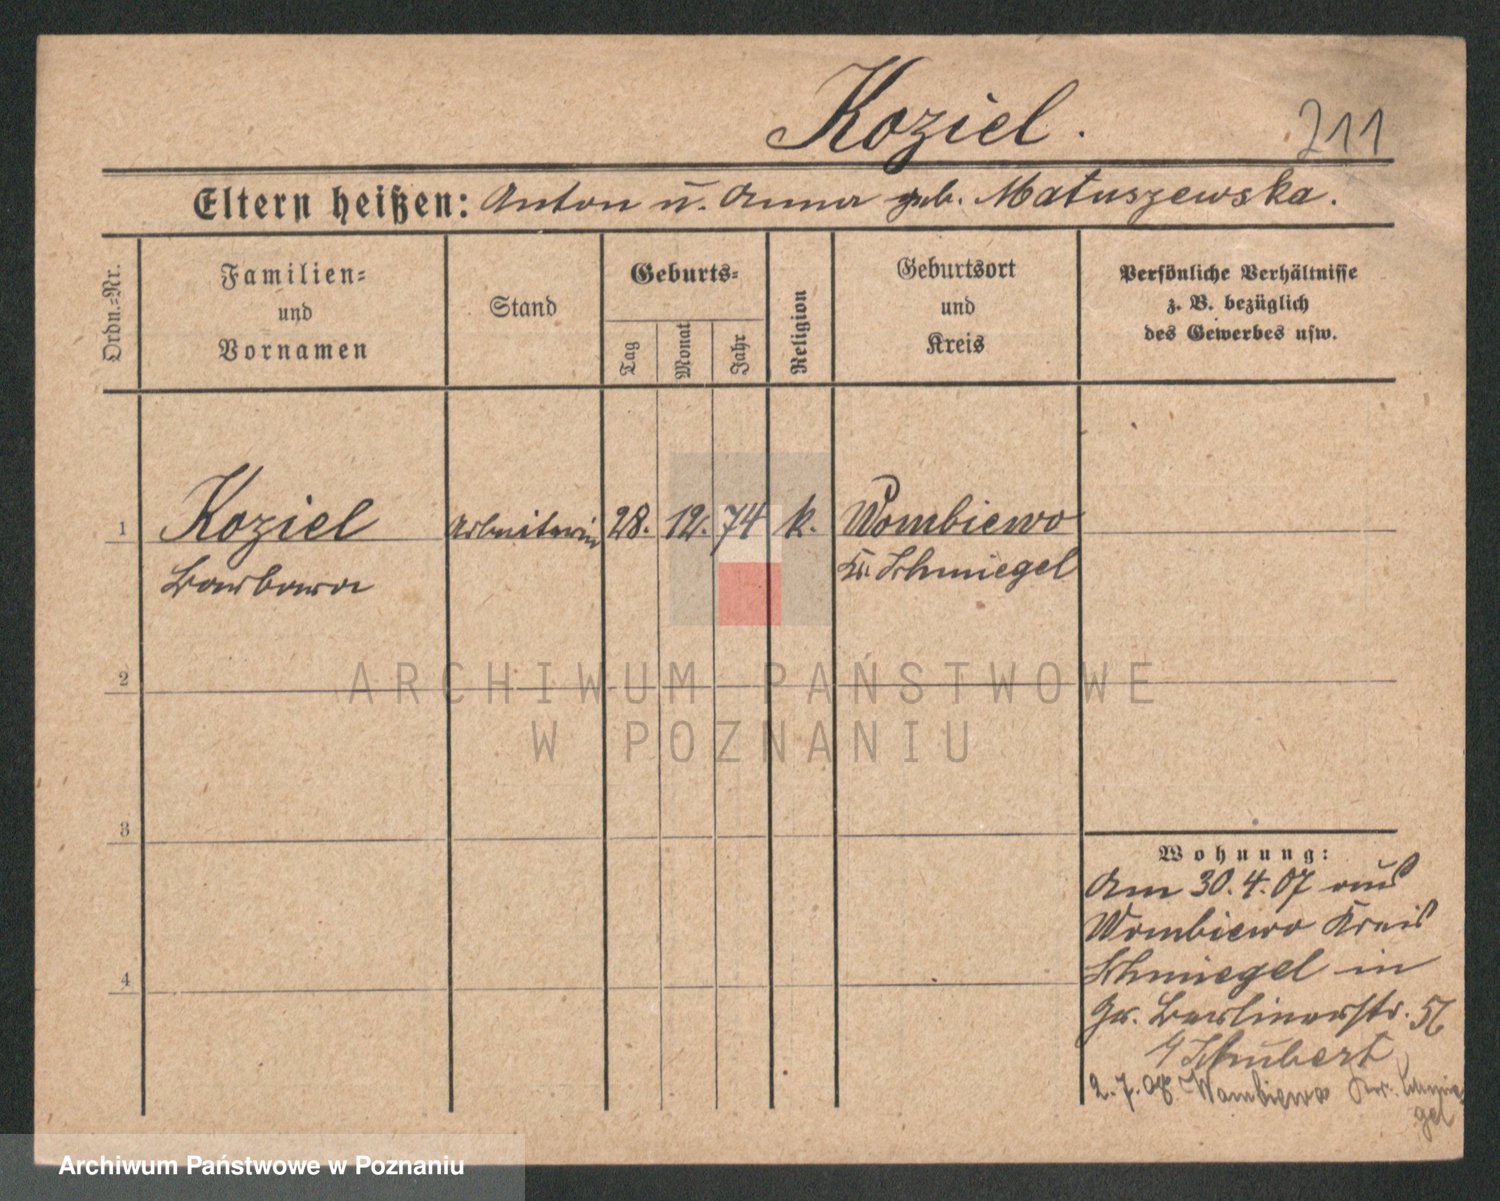 Koziel.
211
Eltern heißen: Anton u. Anna geb. Matuszewska.
Ordn.-Nr.
Familien-
und
Vornamen
Stand
Geburts-
Tag
Monat
Jahr
Religion
Geburtsort
und
Kreis
Persönliche Verhältnisse
z. B. bezüglich
des Gewerbes usw.
1 Koziel Arbeiterin 28. 12. 74 k. Wombiewo
Barbara Kr. Schmiegel
2
ARCHIWUM PAŃSTWOWE
W POZNANIU
3
Wohnung:
Am 30.4.07 aus
Wombiewo Kreis
4
Schmiegel in
Gr. Berlinerstr. 56
b/ Schubert
2.7.08 Wombiewo Kr. Schmie-
gel
Archiwum Państwowe w Poznaniu